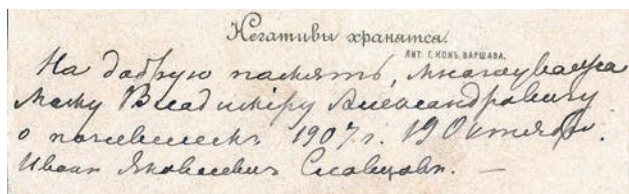 Негативы хранятся.
ЛИТ. Г. КОНЪ, ВАРШАВА.
На добрую память, многоуважа
мому Владимiру Александровичу
о 1907 г. 19 Октября.
Иванъ Яковлевичъ Словцовъ. —